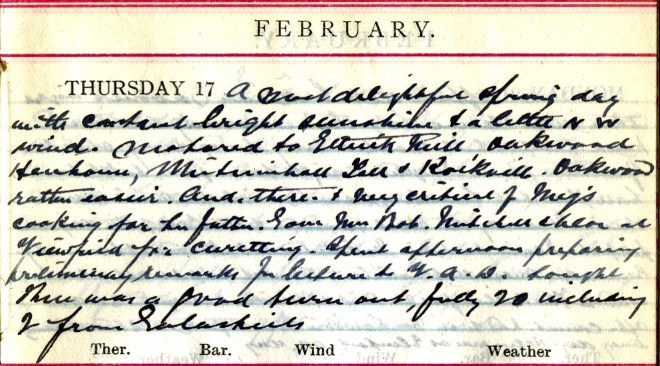 FEBRUARY.
THURSDAY 17 A most delightful spring day
with constant bright sunshine & a little N W
wind. Motored to Ettrick Mill Oakwood
Henhouse, & Rockville. Oakwood
rather easier. And. there & very critical of Meg's
cooking for her father. Gave Mrs Bob. Mitchell chlor at
Viewfield for curetting. Spent afternoon preparing
preliminary remarks for lecture to tonight
There was a good turn out, fully 20 including
2 from Galashiels
Ther. Bar. Wind Weather